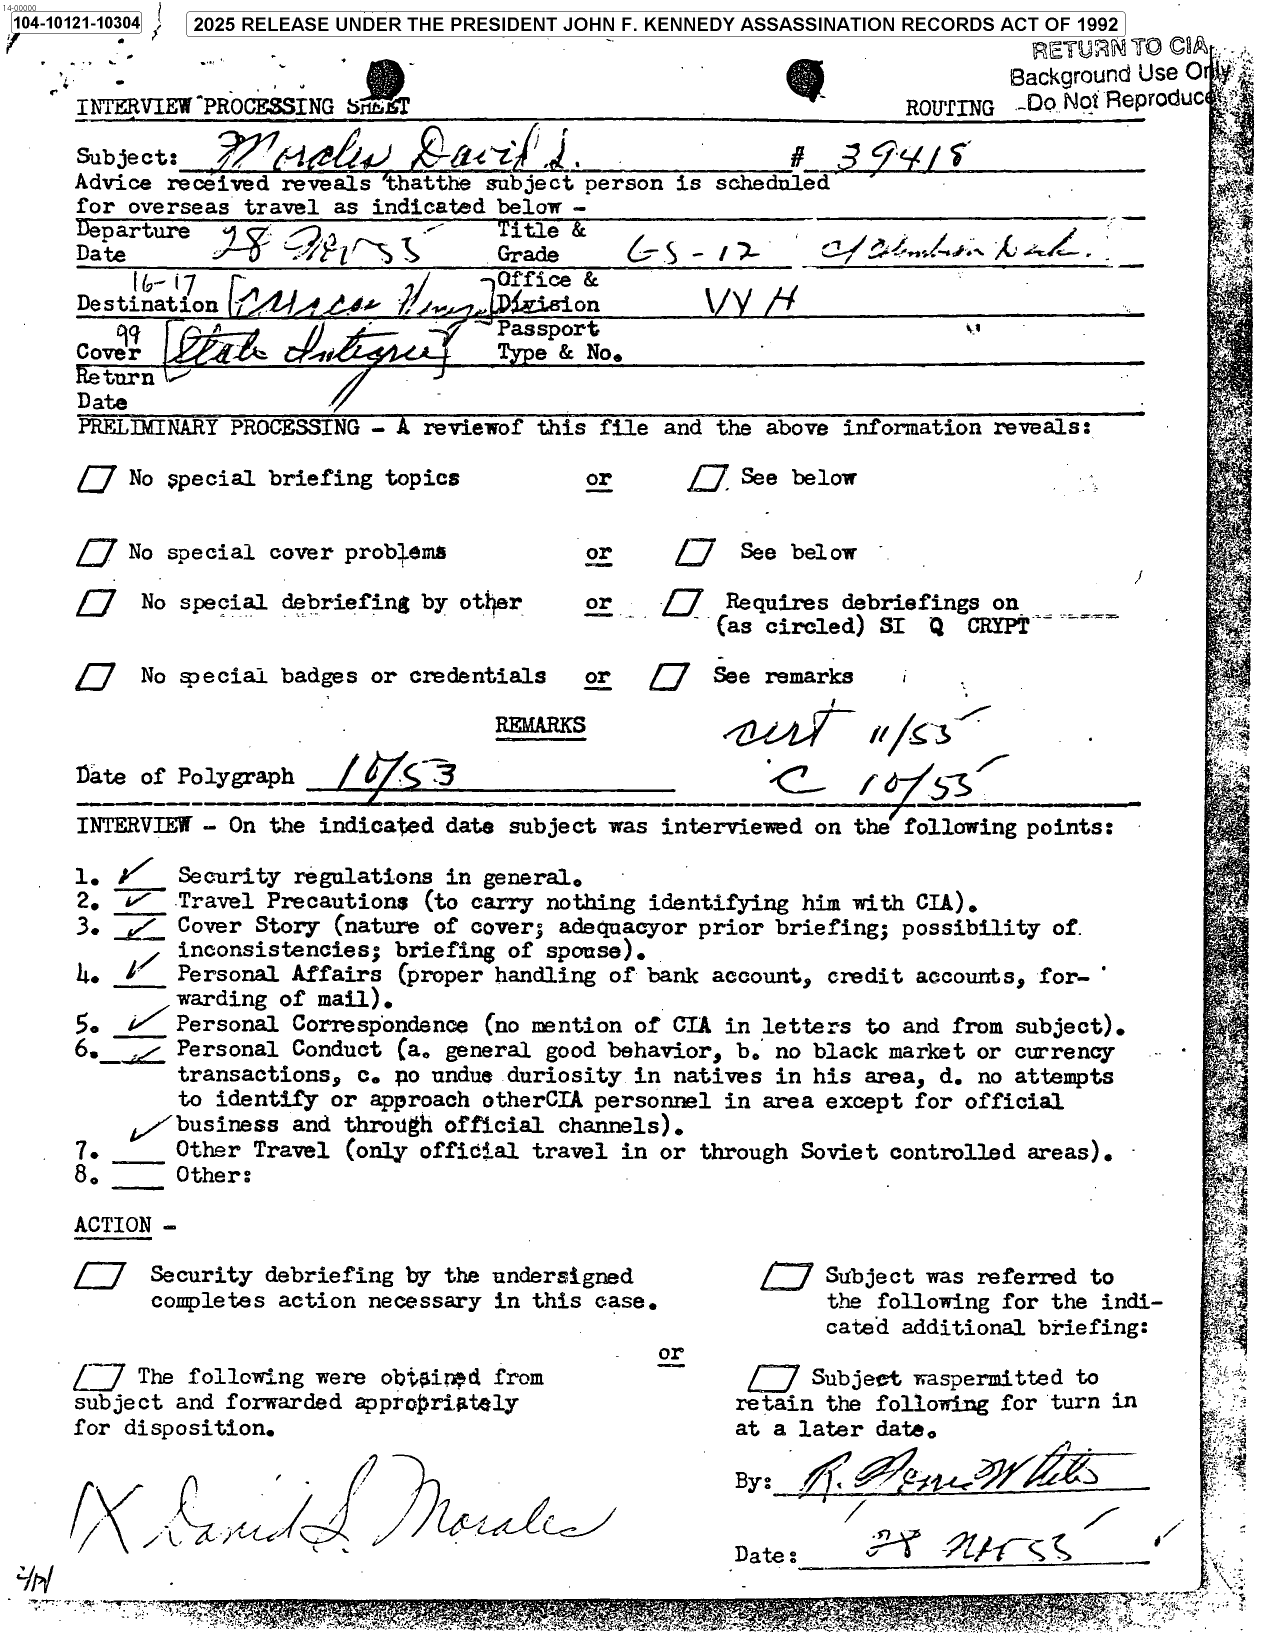 14-00000
104-10121-10304
2025 RELEASE UNDER THE PRESIDENT JOHN F. KENNEDY ASSASSINATION RECORDS ACT OF 1992
RETURN TO CIA
Background Use Only
Do Not Reproduce
INTERVIEW PROCESSING SHEET ROUTING
Subject: Morales David S. # 39418
Advice received reveals thatthe subject person is scheduled
for overseas travel as indicated below -
Departure Title &
Date 28 Nov 55 Grade GS-12
16-17 Office &
Destination [Caracas Division WH
99 Passport
Cover [State Integree] Type & No.
Return
Date
PRELIMINARY PROCESSING - A reviewof this file and the above information reveals:
No special briefing topics or See below
No special cover problems or See below
No special debriefing by other or Requires debriefings on
(as circled) SI Q CRYPT
No special badges or credentials or See remarks
REMARKS cert 11/55
Date of Polygraph 10/53 C 10/55
INTERVIEW - On the indicated date subject was interviewed on the following points:
1. ✓ Security regulations in general.
2. ✓ Travel Precautions (to carry nothing identifying him with CIA).
3. ✓ Cover Story (nature of cover; adequacyor prior briefing; possibility of
inconsistencies; briefing of spouse).
4. ✓ Personal Affairs (proper handling of bank account, credit accounts, for-
warding of mail).
5. ✓ Personal Correspondence (no mention of CIA in letters to and from subject).
6. ✓ Personal Conduct (a. general good behavior, b. no black market or currency
transactions, c. no undue duriosity in natives in his area, d. no attempts
to identify or approach otherCIA personnel in area except for official
business and through official channels).
7. ✓ Other Travel (only official travel in or through Soviet controlled areas).
8. Other:
ACTION -
Security debriefing by the undersigned
completes action necessary in this case.
Subject was referred to
the following for the indi-
cated additional briefing:
or
The following were obtained from
subject and forwarded appropriately
for disposition.
Subject waspermitted to
retain the following for turn in
at a later date.
By: R.
X David S. Morales
Date: 28 Nov 55